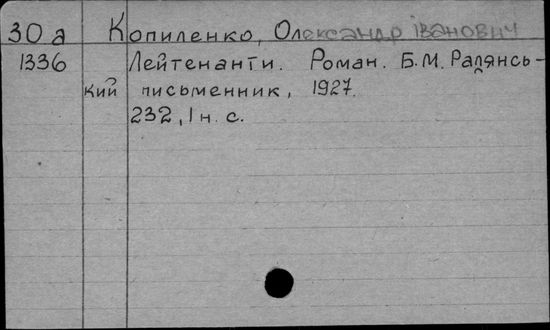 30 а Копиленко, Олександр Іванович
1336 Лейтенанти. Роман. Б.М. Радянсь-
кий письменник, 1927.
232, 1 н. с.